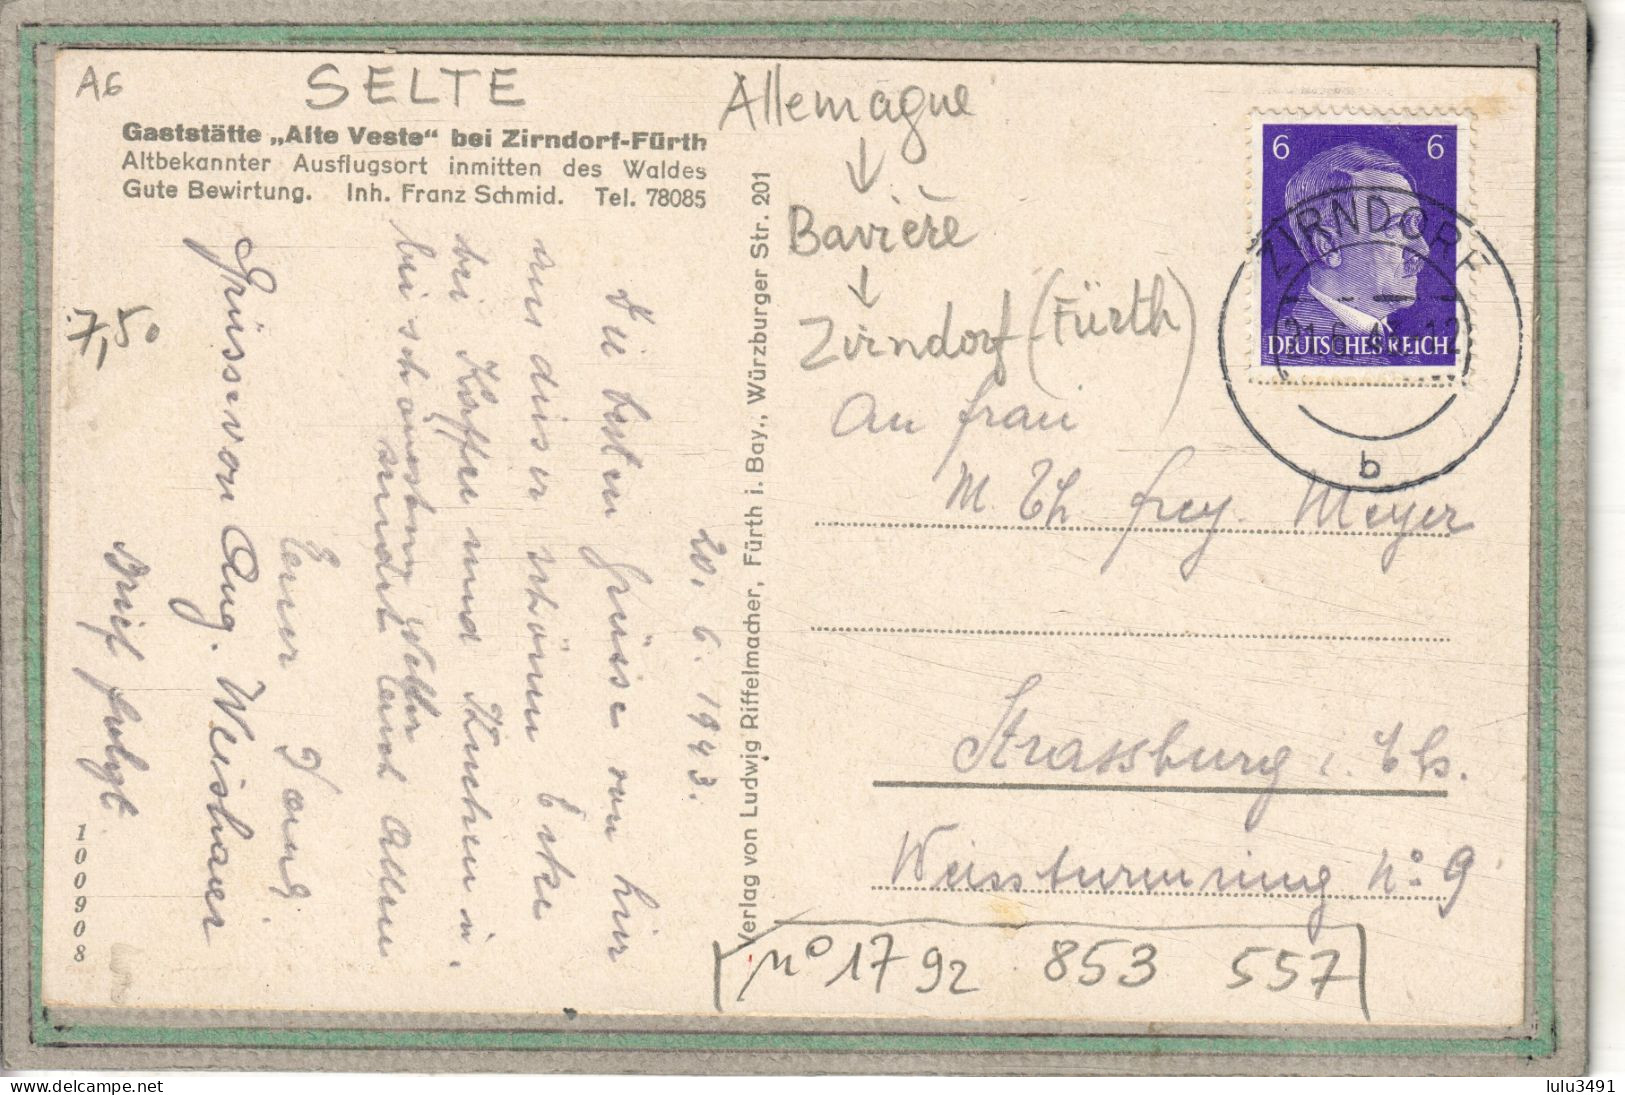 A6
SELTE
Gaststätte „Alte Veste“ bei Zirndorf-Fürth
Altbekannter Ausflugsort inmitten des Waldes
Gute Bewirtung. Inh. Franz Schmid. Tel. 78085
7,50
20. 6. 1943.
Die besten Grüsse von hier
aus dieser schönen Ecke
bei Kaffee und Kuchen u.
bei schönstem Wetter
sendet Euch allen
Eeuer
Grüsse von Aug. Weishaer
Brief folgt
100908
Verlag von Ludwig Riffelmacher, Fürth i. Bay., Würzburger Str. 201
Allemagne
↓
Bavière
↓
Zirndorf (Fürth)
6 6
DEUTSCHES REICH
ZIRNDORF
21.6.43.12
b
An Frau
M. Th. Frey. Meyer
Strassburg i. Els.
Weissturmring No. 9
n° 1792 853 557
lulu3491